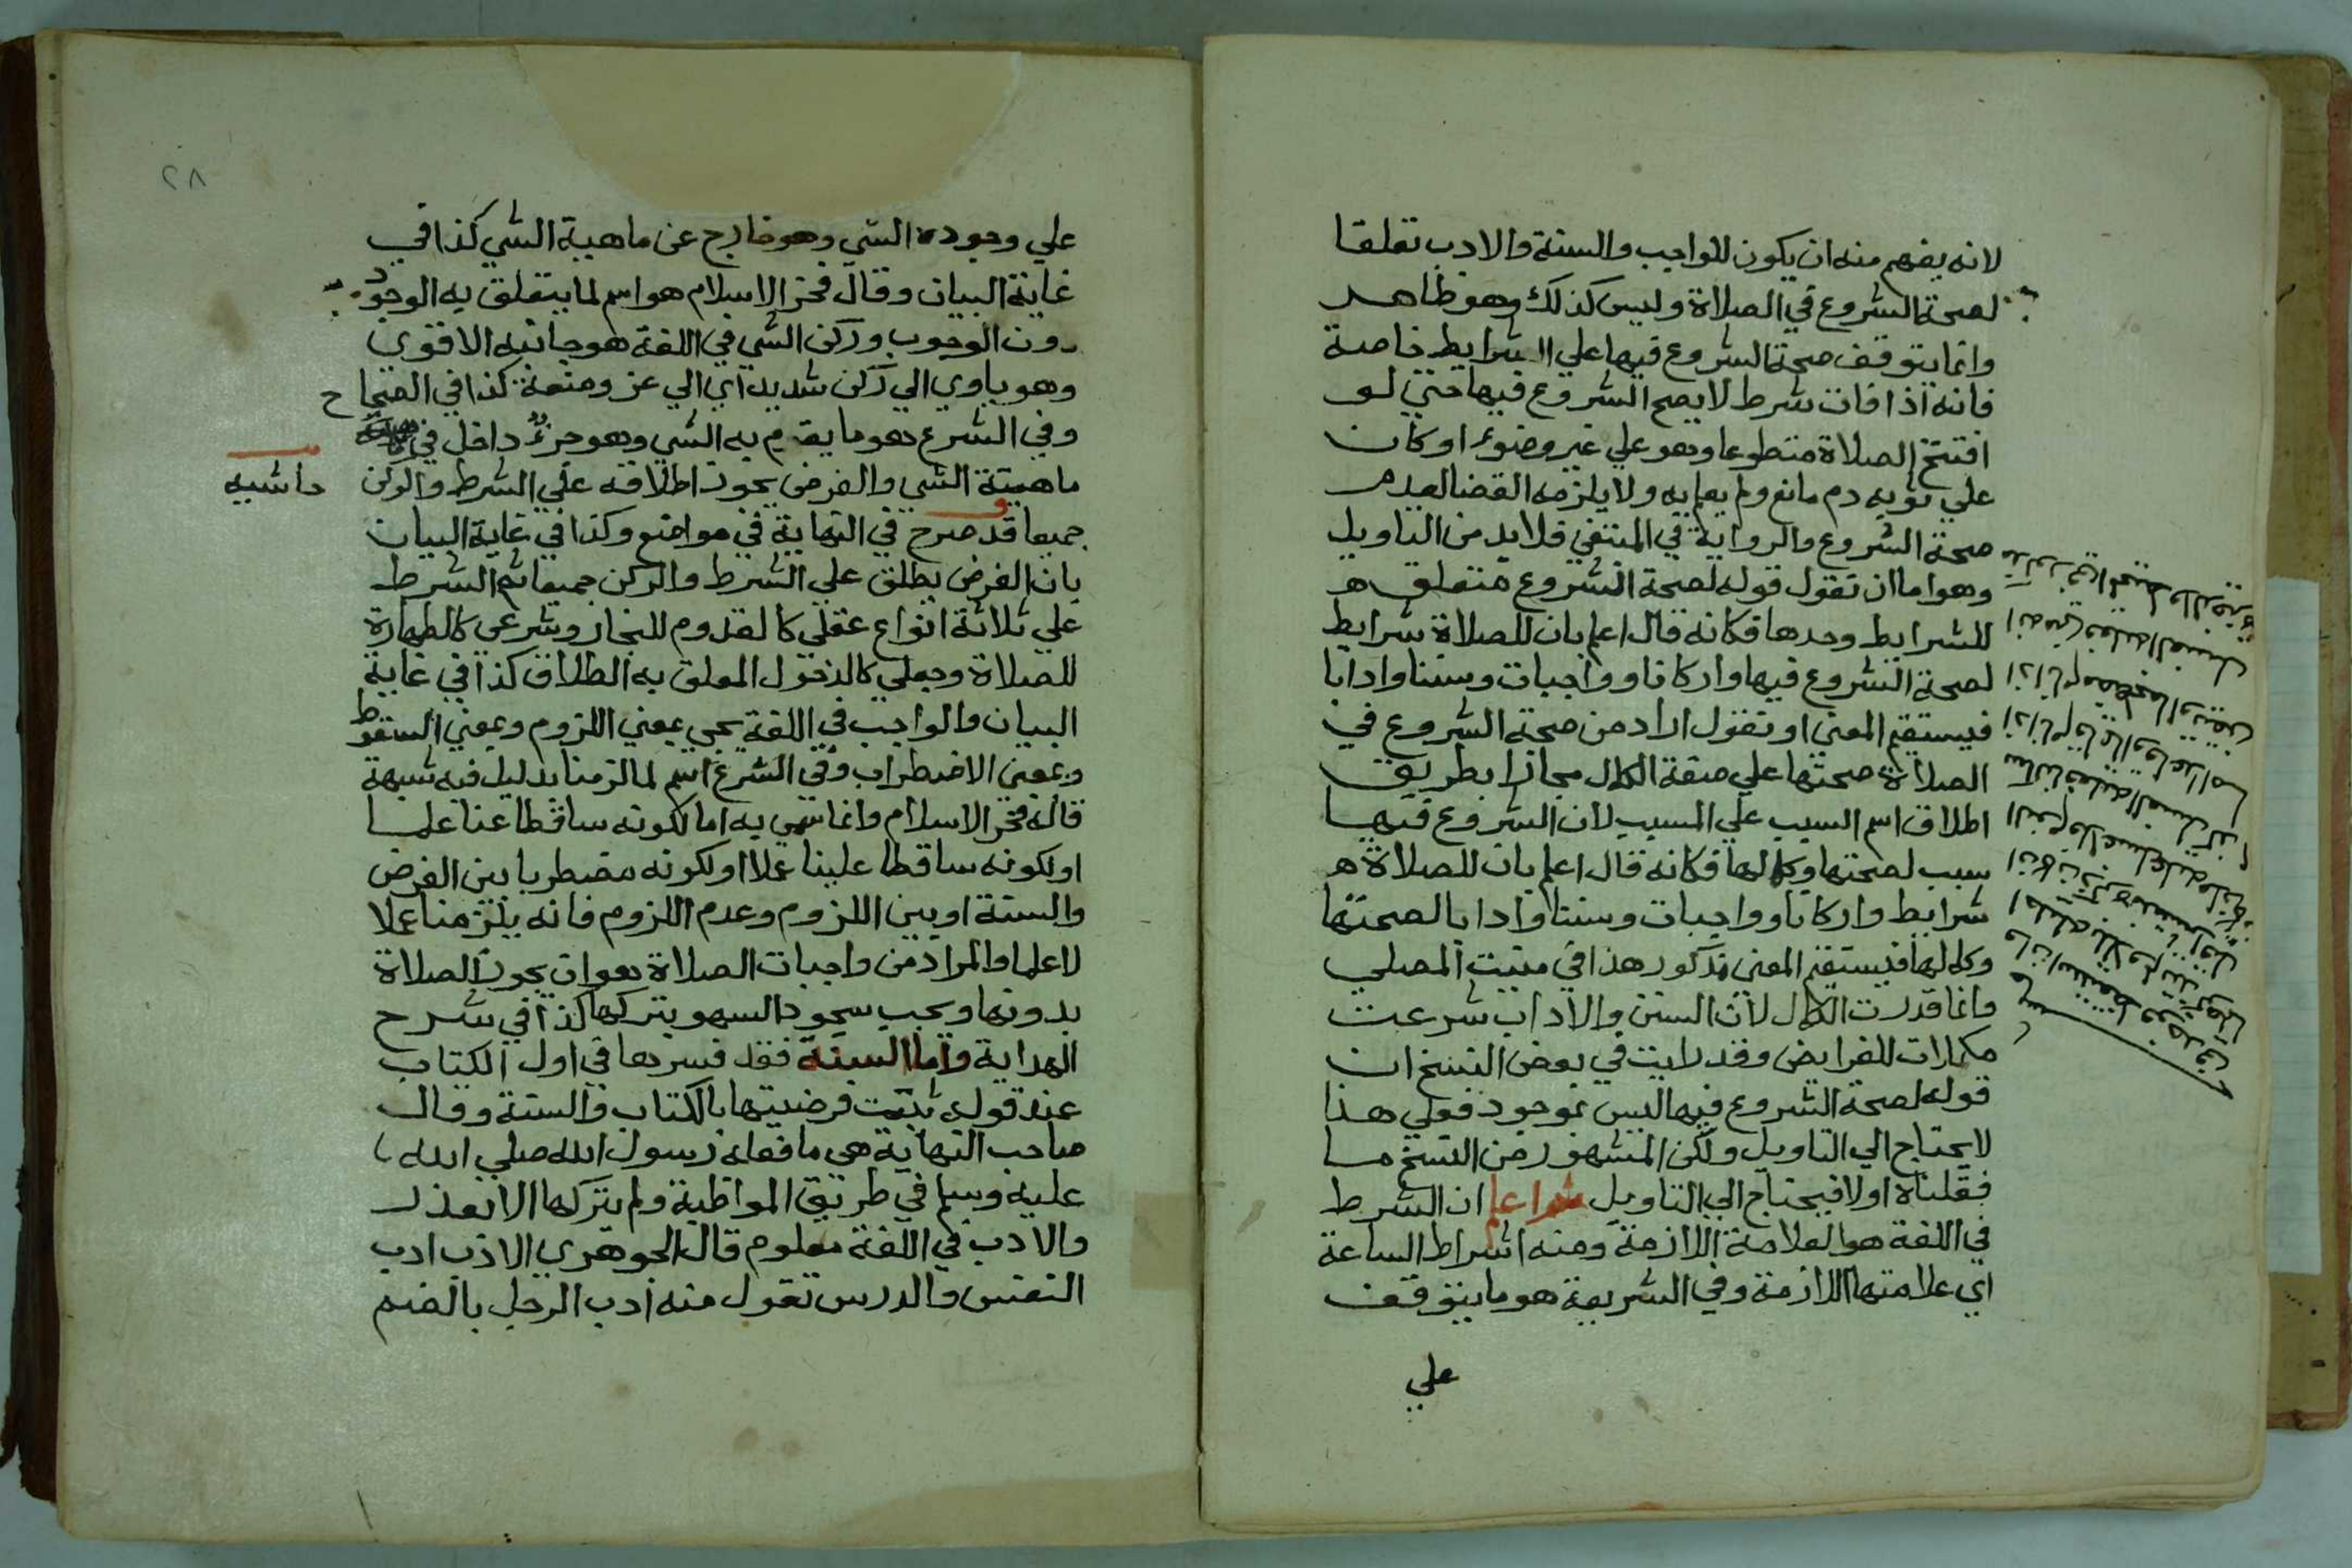 لانه يفهم منه ان يكون للواجب والسنة والادب تعلقا
لصحة الشروع في الصلاة وليس كذلك وهو ظاهر
وانما يتوقف صحة الشروع فيها علي الشرايط خاصة
فانه اذا فات شرط لا يصح الشروع فيها حتي لو
افتتح الصلاة متطوعا وهو علي غير وضوء او كان
علي ثوبه دم مانع ولم يعلم به ولا يلزمه القضا لعدم
صحة الشروع والرواية في المنتقي فلا بد من التاويل
وهو اما ان تقول قوله لصحة الشروع متعلق
للشرايط وحدها فكانه قال اعلم بان للصلاة شرايط
لصحة الشروع فيها واركانا وواجبات وسننا وادابا
فيستقيم المعني او تقول اراد من صحة الشروع في
الصلاة صحتها علي صفة الكمال مجازا بطريق
اطلاق اسم السبب علي المسبب لان الشروع فيها
سبب لصحتها وكمالها فكانه قال اعلم بان للصلاة
شرايط واركانا وواجبات وسننا وادابا لصحتها
وكمالها فيستقيم المعني مذكور هذا في منيت المصلي
وانما قدرت الكمال لان السنن والاداب شرعت
مكملات للفرايض وقد رايت في بعض النسخ ان
قوله لصحة الشروع فيها ليس بموجود فعلي هذا
لا يحتاج الي التاويل ولكن المشهور من النسخ ما
فقلناه اولا فيحتاج الي التاويل ثم اعلم ان الشرط
في اللغة هو العلامة اللازمة ومنه اشراط الساعة
اي علامتها اللازمة وفي الشريعة هو ما يتوقف
علي
٢٨
علي وجوده الشي وهو خارج عن ماهية الشي كذا في
غاية البيان وقال فخر الاسلام هو اسم لما يتعلق به الوجود
دون الوجوب وركن الشي في اللغة هو جانبه الاقوي
وهو ياوي الي ركن شديد اي الي عز ومنعة كذا في الصحاح
وفي الشرع هو ما يقوم به الشي وهو جزؤ داخل في
ماهية الشي والفرض يجوز اطلاقه علي الشرط والركن
حاشيه
جميعا وقد صرح في النهاية في مواضع وكذا في غاية البيان
بان الفرض يطلق علي الشرط والركن جميعا ثم الشرط
علي ثلاثة انواع عقلي كالقدوم للنجار وشرعي كالطهارة
للصلاة وجعلي كالدخول المعلق به الطلاق كذا في غاية
البيان والواجب في اللغة يجي بمعني اللزوم وبمعني السقوط
وبمعني الاضطراب وفي الشرع اسم لما لزمنا بدليل فيه شبهة
قاله فخر الاسلام وانما سمي به اما لكونه ساقطا عنا علما
او لكونه ساقطا علينا عملا او لكونه مضطربا بين الفرض
والسنة او بين اللزوم وعدم اللزوم فانه يلزمنا عملا
لا علما والمراد من واجبات الصلاة هو ان يجوز الصلاة
بدونها ويجب سجود السهو بتركها كذا في شرح
الهداية واما السنة فقد فسرها في اول الكتاب
عند قوله ثبتت فرضيتها بالكتاب والسنة وقال
صاحب النهاية هي ما فعله رسول الله صلي الله
عليه وسلم في طريق المواظبة ولم يتركها الا بعذر
والادب في اللغة معلوم قال الجوهري الادب ادب
النفس والدرس تقول منه ادب الرجل بالضم